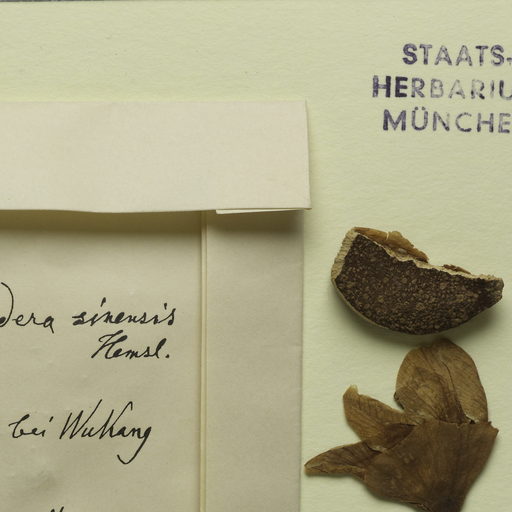 STAATS-
HERBARIU
MÜNCHE
dera sinensis
Hemsl.
bei WuKang